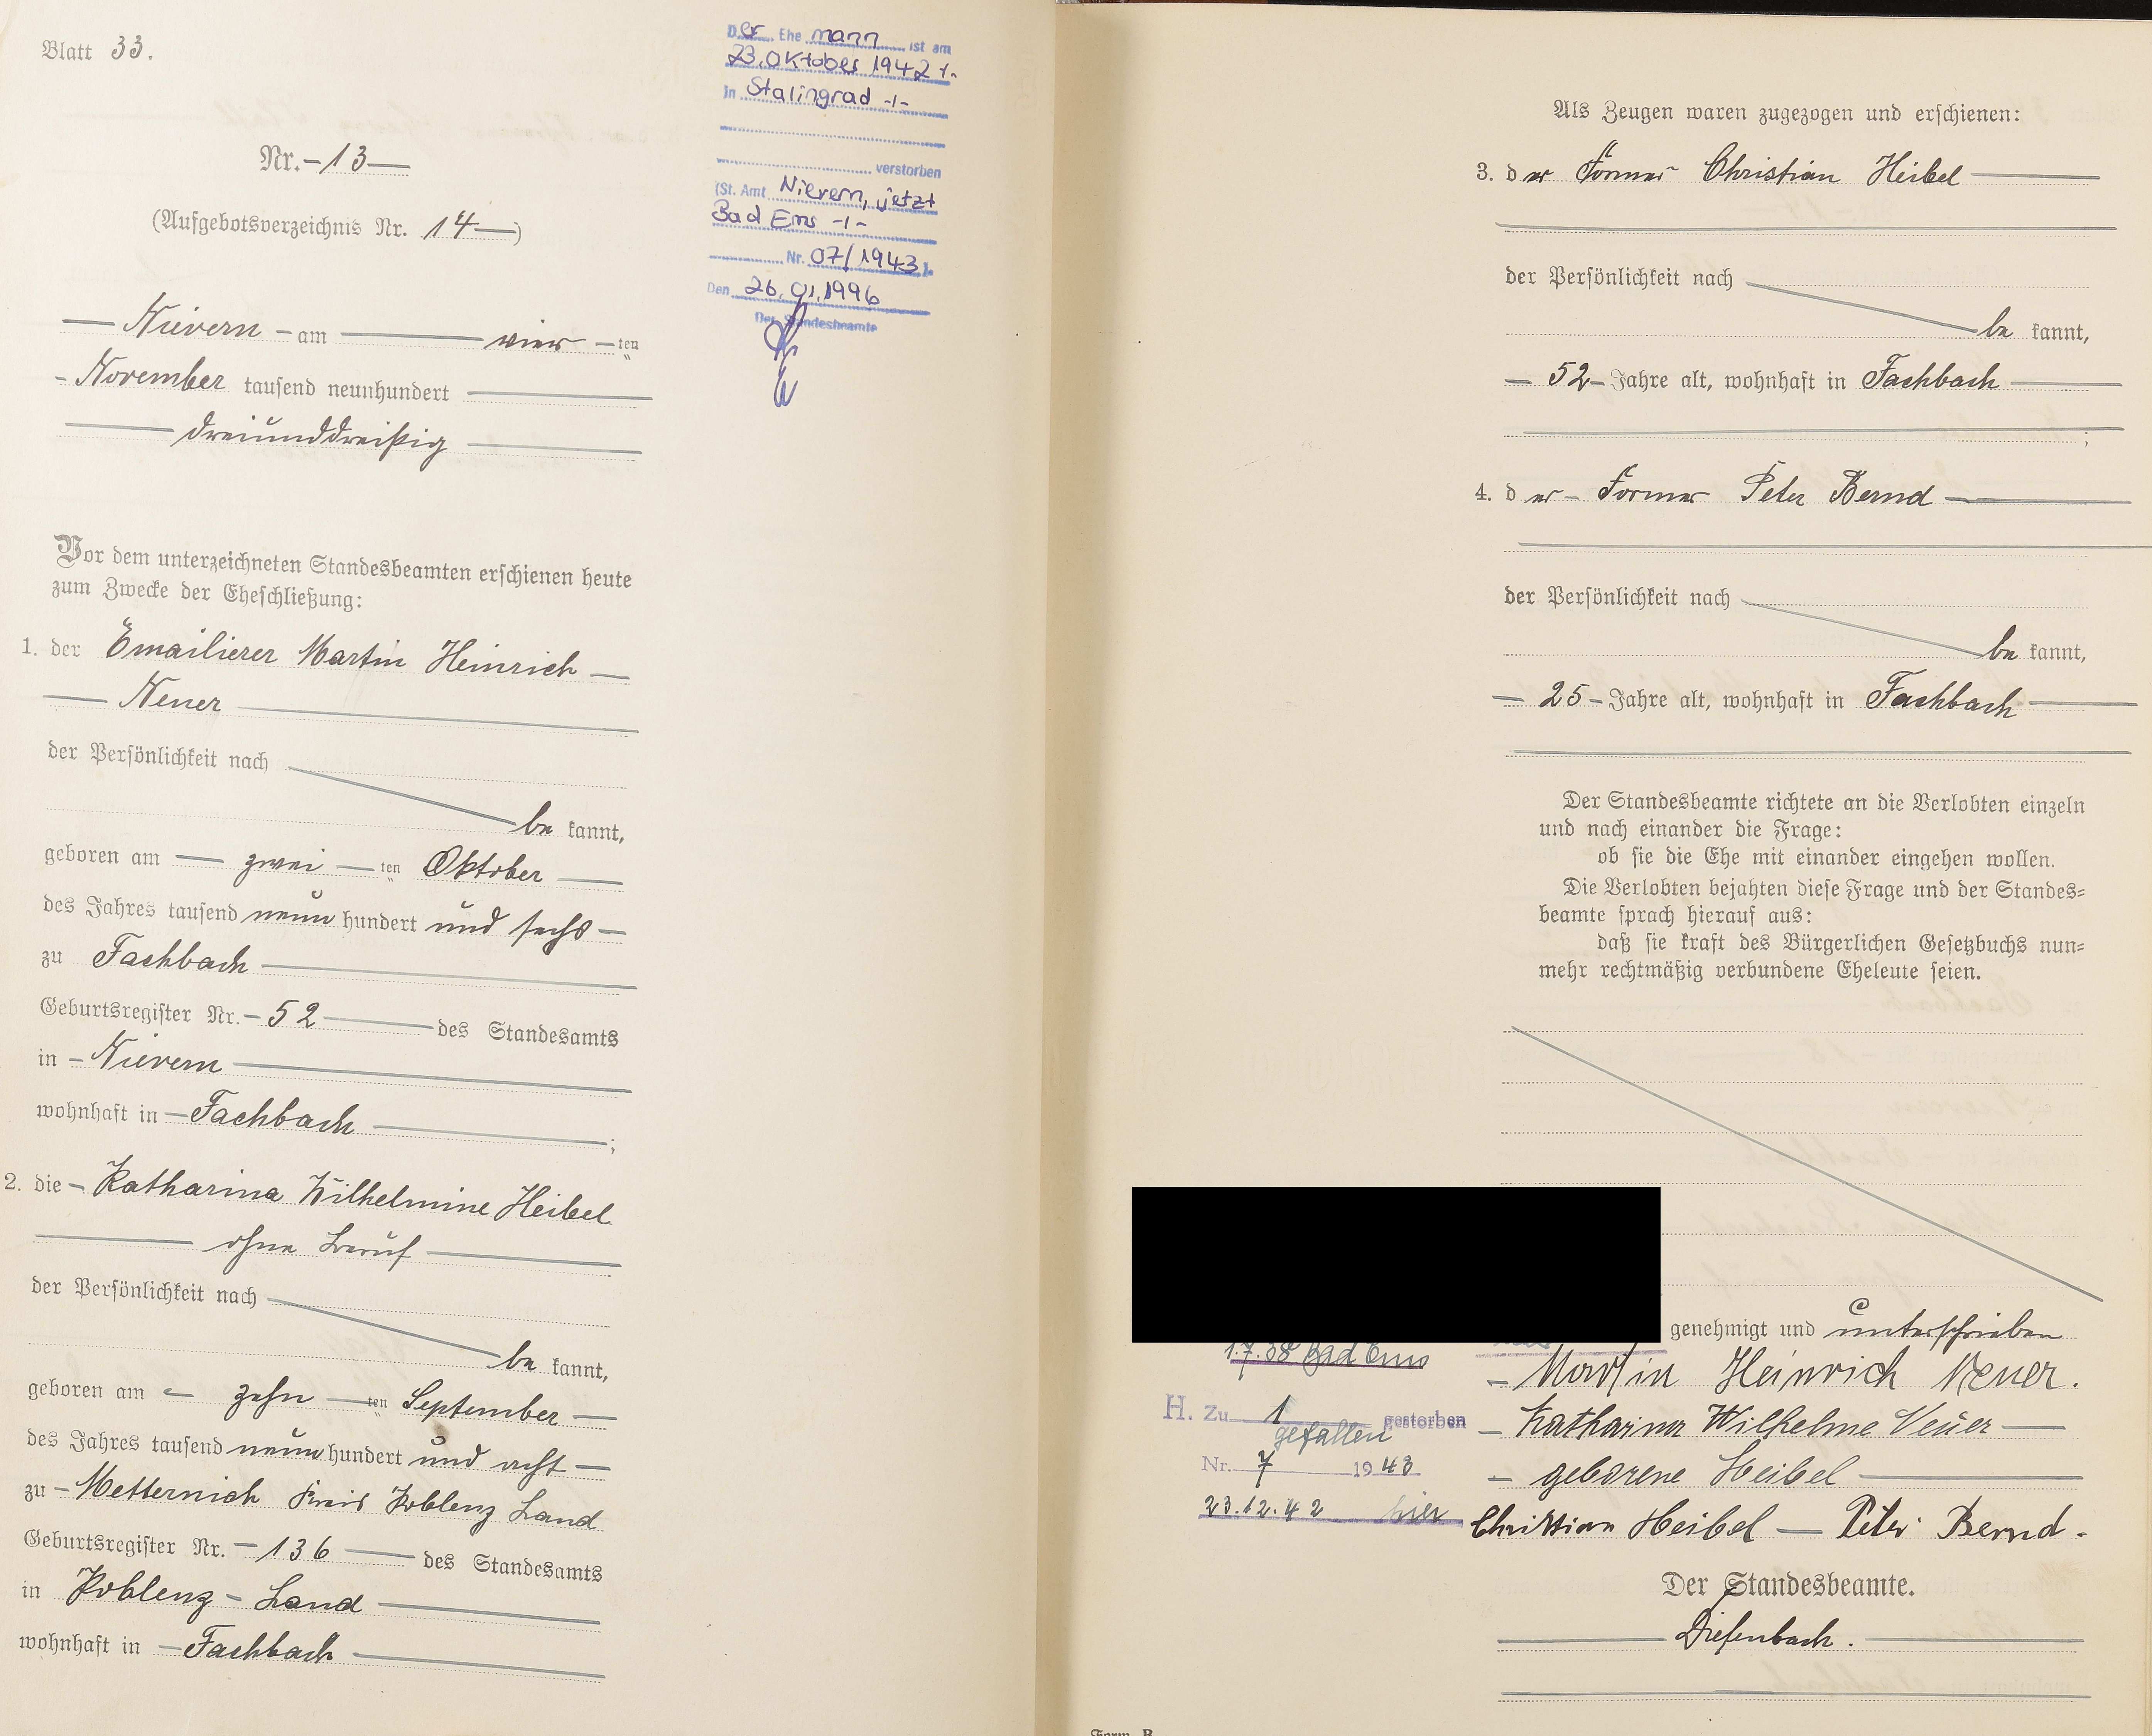 Blatt 33.
Nr. - 13 -
(Aufgebotsverzeichnis Nr. 14 - )
- Nievern - am - vier - ten
- November tausend neunhundert
- dreiunddreißig -
Vor dem unterzeichneten Standesbeamten erschienen heute
zum Zwecke der Eheschließung:
1. der Emailierer Martin Heinrich -
- Neuer -
der Persönlichkeit nach
be kannt,
geboren am - zwei - ten Oktober -
des Jahres tausend neun hundert und sechs -
zu Fachbach -
Geburtsregister Nr. - 52 - des Standesamts
in - Nievern -
wohnhaft in - Fachbach - ;
2. die - Katharina Wilhelmine Heibel
- ohne Beruf -
der Persönlichkeit nach
be kannt,
geboren am - zehn - ten September -
des Jahres tausend neun hundert und acht -
zu - Metternich Kreis Koblenz Land
Geburtsregister Nr. - 136 - des Standesamts
in Koblenz - Land -
wohnhaft in - Fachbach -
Der Ehe mann ist am
23. Oktober 1942 -/-
in Stalingrad -/-
verstorben
(St. Amt Nievern, jetzt
Bad Ems -/-
Nr. 07/1943).
Den 26.01.1996
Der Standesbeamte
Als Zeugen waren zugezogen und erschienen:
3. der Former Christian Heibel -
der Persönlichkeit nach
be kannt,
- 52 - Jahre alt, wohnhaft in Fachbach -
;
4. der - Former Peter Bernd -
der Persönlichkeit nach
be kannt,
- 25 - Jahre alt, wohnhaft in Fachbach -
Der Standesbeamte richtete an die Verlobten einzeln
und nach einander die Frage:
ob sie die Ehe mit einander eingehen wollen.
Die Verlobten bejahten diese Frage und der Standes=
beamte sprach hierauf aus:
daß sie kraft des Bürgerlichen Gesetzbuchs nun=
mehr rechtmäßig verbundene Eheleute seien.
genehmigt und unterschrieben
- Martin Heinrich Neuer.
- Katharina Wilhelme Neuer -
- geborene Heibel -
Christian Heibel - Peter Bernd -
Der Standesbeamte.
Diefenbach.
1.7.38 Bad Ems
H. Zu 1 gestorben
gefallen
Nr. 7 1943
23.12.42 hier
Form. B